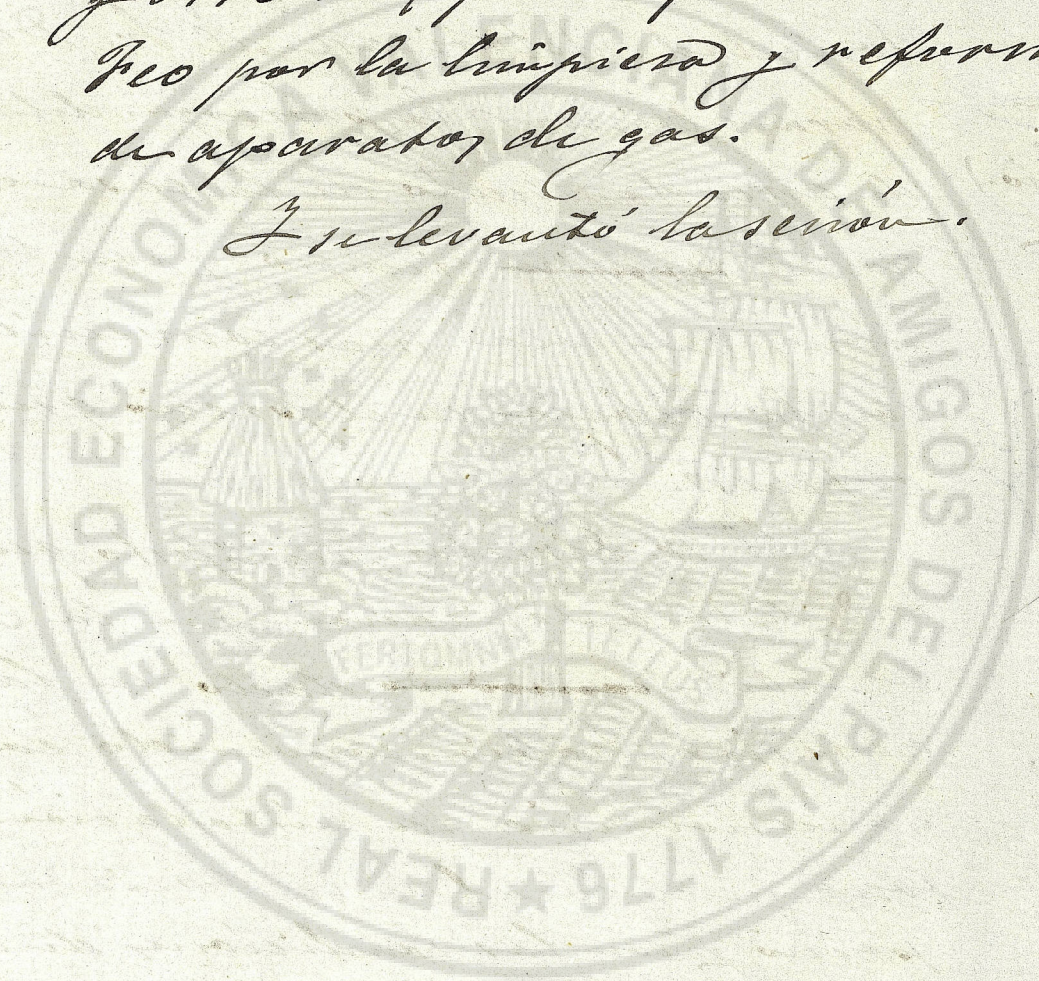 Feo por la limpieza y reform
de aparatos de gas.
Y se levantó la sesión.
REAL SOCIEDAD ECONOMICA VALENCIANA DE AMIGOS DEL PAIS 1776
FERT OMNIA TELLUS